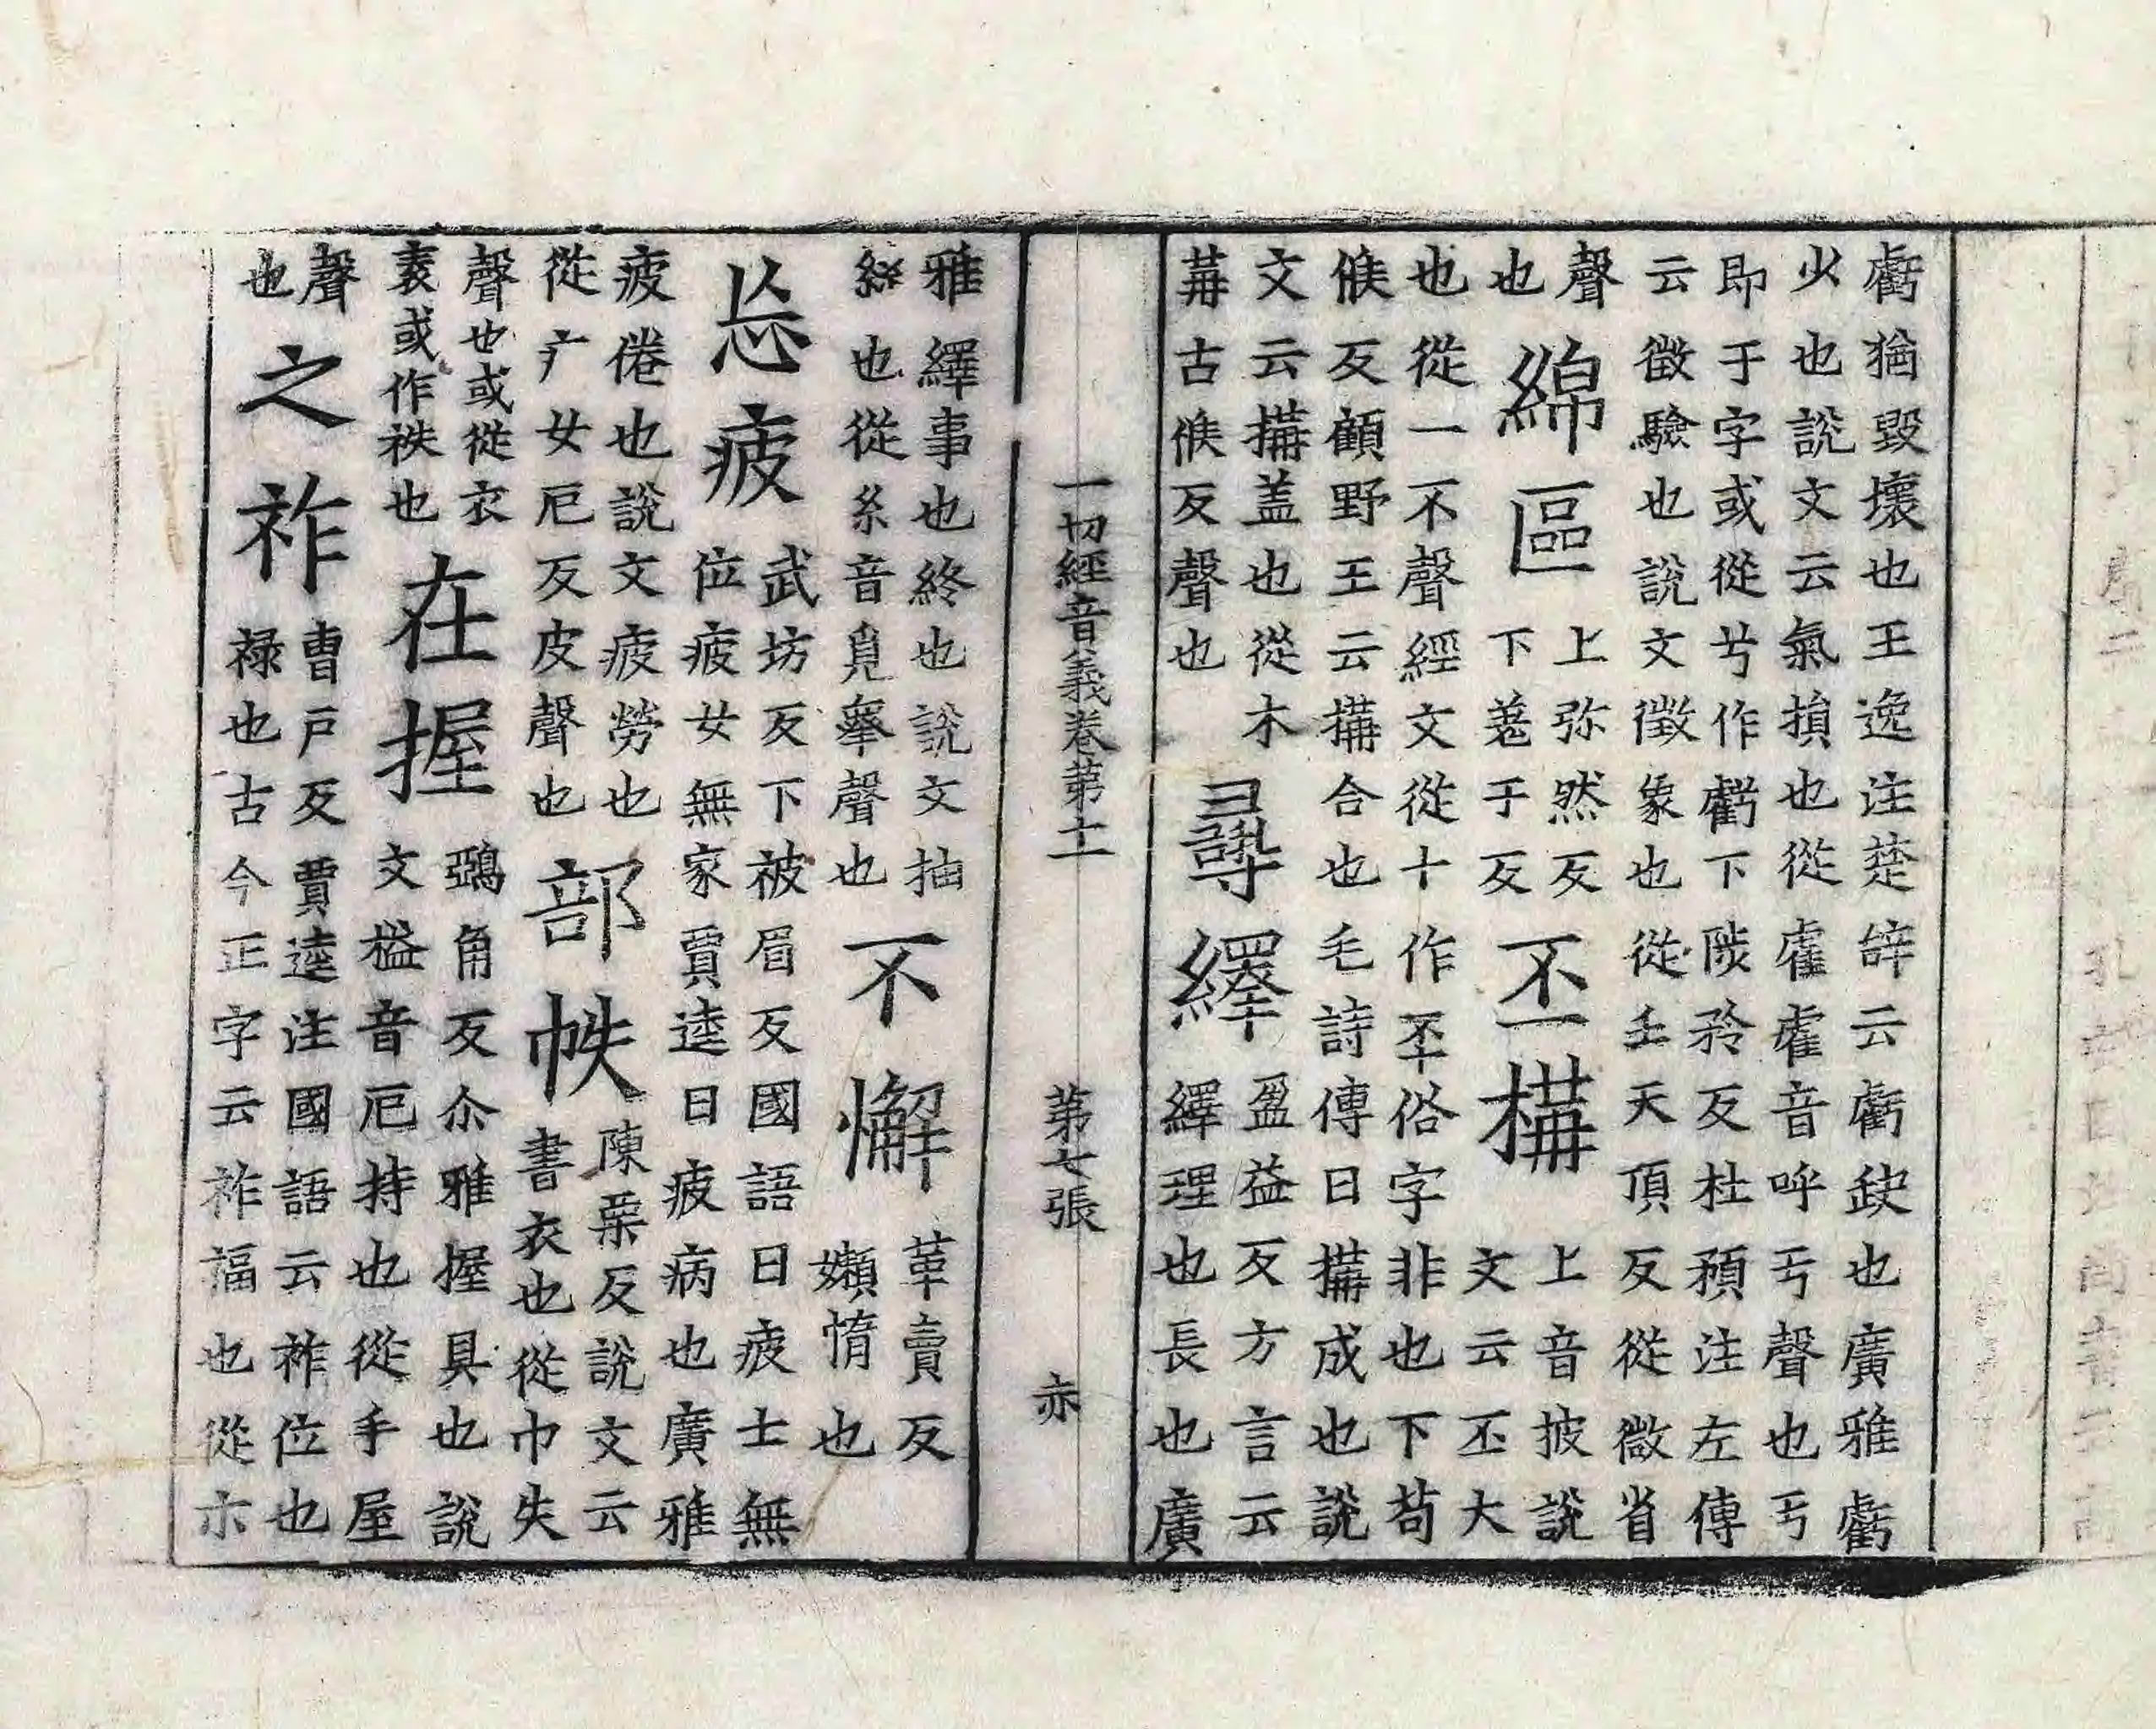 虧猶毀壞也王逸注楚辝云虧缺也廣雅虧
少也說文云氣損也從雐雐音呼亐聲也亐
即于字或從兮作虧下陟矜反杜預注左傳
云徵驗也說文徵象也從壬天頂反從微省
聲
也
綿區
上弥然反
下羌于反
丕構
上音披說
文云丕大
也從一不聲經文從十作㔻俗字非也下苟
候反顧野王云構合也毛詩傳曰構成也說
文云構盖也從木
冓古候反聲也
尋繹
盈益反方言云
繹理也長也廣
一切經音義卷第十一 第七張 亦
雅繹事也終也說文抽
絲也從糸音覓睪聲也
不懈
革賣反
嬾惰也
忘疲
武坊反下被眉反國語曰疲士無
位疲女無家賈逵曰疲病也廣雅
疲倦也說文疲勞也
從疒女厄反皮聲也
部帙
陳栗反說文云
書衣也從巾失
聲也或從衣
袠或作袟也
在握
鵶角反尒雅握具也說
文搤音厄持也從手屋
聲
也
之祚
曹戶反賈逵注國語云祚位也
祿也古今正字云祚福也從示